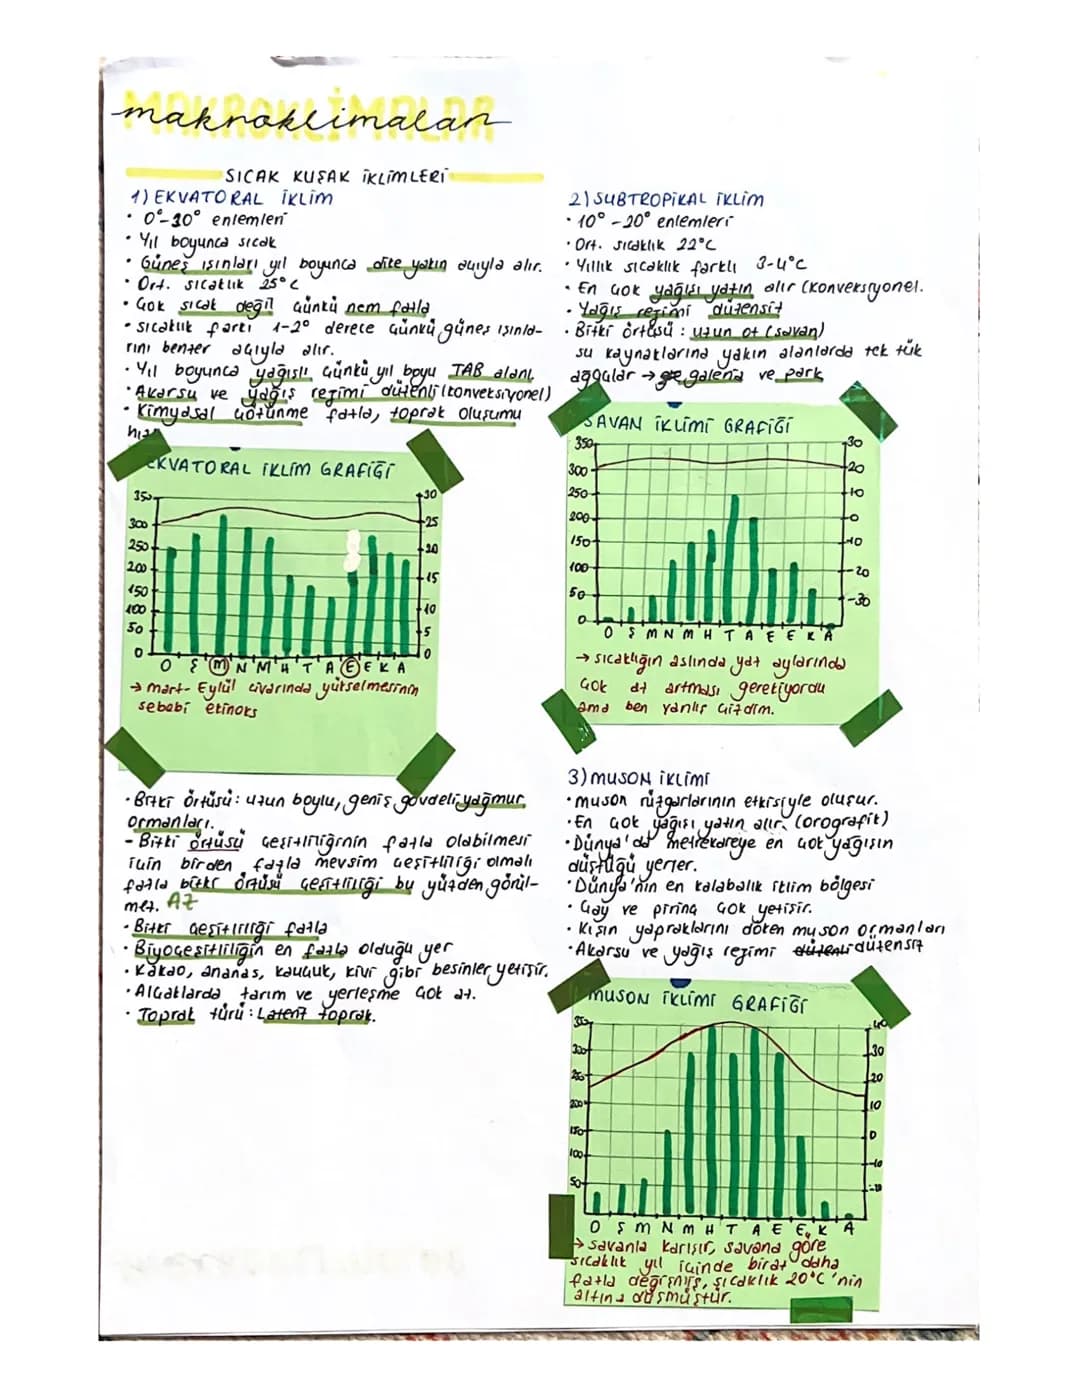 makroklimalar
SICAK KUŞAK İKLİMLERİ
1) EKVATORAL İKLİM
• 0°-10° enlemleri
• Yıl boyunca sıcak
• Güneş ışınları yıl boyunca dike yakın açıyla alır.
• Ort. sıcaklık 25°C
• Çok sıcak değil çünkü nem fazla
• sıcaklık farkı 1-2° derece çünkü güneş ışınla-
rını benzer açıyla alır.
• Yıl boyunca yağışlı çünkü yıl boyu TAB alanı
• Akarsu ve yağış rejimi düzenli (konveksiyonel)
• Kimyasal çözünme fazla, toprak oluşumu
EKVATORAL İKLİM GRAFİĞİ
350 300 250 200 150 100 50 0
30 25 20 15 10 5 0
O Ş M N M H T A E E K A
→ mart- Eylül civarında yükselmesinin
sebebi ekinoks
• Bitki örtüsü: uzun boylu, geniş gövdeli yağmur
ormanları.
- Bitki örtüsü çeşitliliğinin fazla olabilmesi
için birden fazla mevsim çeşitliliği olmalı
fazla bitki örtüsü çeşitliliği bu yüzden görül-
mez. AZ
• Bitki çeşitliliği fazla
• Biyoçeşitliliğin en fazla olduğu yer
• Kakao, ananas, kauçuk, kivi gibi besinler yetişir.
• Alçaklarda tarım ve yerleşme çok az.
• Toprak türü: Laterit toprak.
2) SUBTROPİKAL İKLİM
• 10° -20° enlemleri
• Ort. sıcaklık 22°C
• Yıllık sıcaklık farkı 3-4°C
• En çok yağışı yazın alır (konveksiyonel.
• Yağış rejimi düzensiz
• Bitki örtüsü: uzun ot (savan)
su kaynaklarına yakın alanlarda tek tük
ağaçlar → galeria ve park
SAVAN İKLİMİ GRAFİĞİ
350 300 250 200 150 100 50 0
30 20 10 0 -10 -20 -30
O Ş M N M H T A E E K A
→ sıcaklığın aslında yaz aylarında
çok az artması gerekiyordu
ama ben yanlış çizdim.
3) MUSON İKLİMİ
• muson rüzgarlarının etkisiyle oluşur.
• En çok yağışı yazın alır. (orografik)
• Dünya'da metrekareye en çok yağışın
düştüğü yerler.
• Dünya'nın en kalabalık iklim bölgesi
• Çay ve pirinç çok yetişir.
• Kışın yapraklarını döken muson ormanları
• Akarsu ve yağış rejimi düzenli düzensiz
MUSON İKLİMİ GRAFİĞİ
350 300 250 200 150 100 50
40 30 20 10 0 -10 -20
O Ş M N M H T A E E K A
→ savanla karışır, savana göre
sıcaklık yıl içinde biraz daha
fazla değişmiş, sıcaklık 20°C'nin
altına düşmüştür.